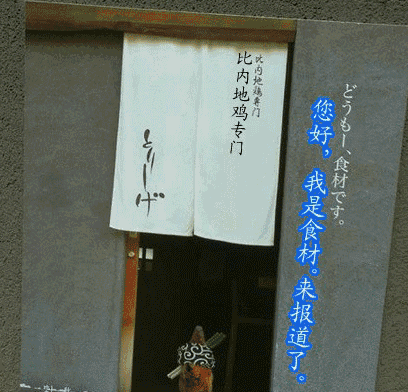 どうもー、食材です。
您好，我是食材。来报道了。
比内地鶏専门
比内地鸡专门
とりしげ